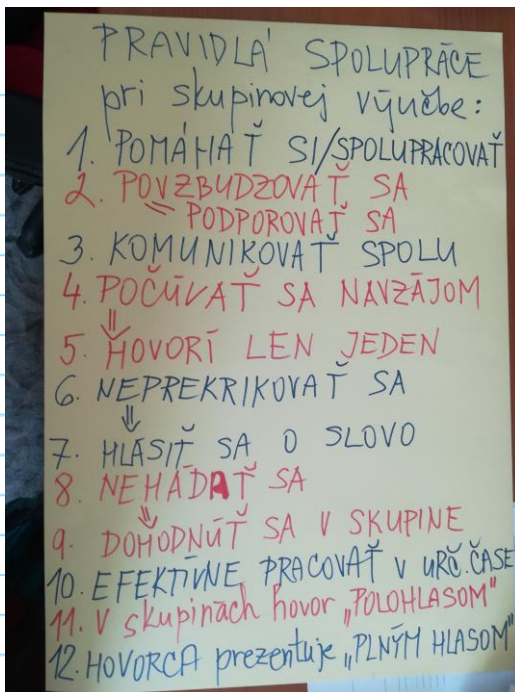 PRAVIDLÁ SPOLUPRÁCE
pri skupinovej výučbe:
1. POMÁHAŤ SI/SPOLUPRACOVAŤ
2. POVZBUDZOVAŤ SA
= PODPOROVAŤ SA
3. KOMUNIKOVAŤ SPOLU
4. POČÚVAŤ SA NAVZÁJOM
⇓
5. HOVORÍ LEN JEDEN
6. NEPREKRIKOVAŤ SA
⇓
7. HLÁSIŤ SA O SLOVO
8. NEHÁDAŤ SA
⇓
9. DOHODNÚŤ SA V SKUPINE
10. EFEKTÍVNE PRACOVAŤ V URČ. ČASE
11. V skupinách hovor „POLOHLASOM"
12. HOVORCA prezentuje „PLNÝM HLASOM"